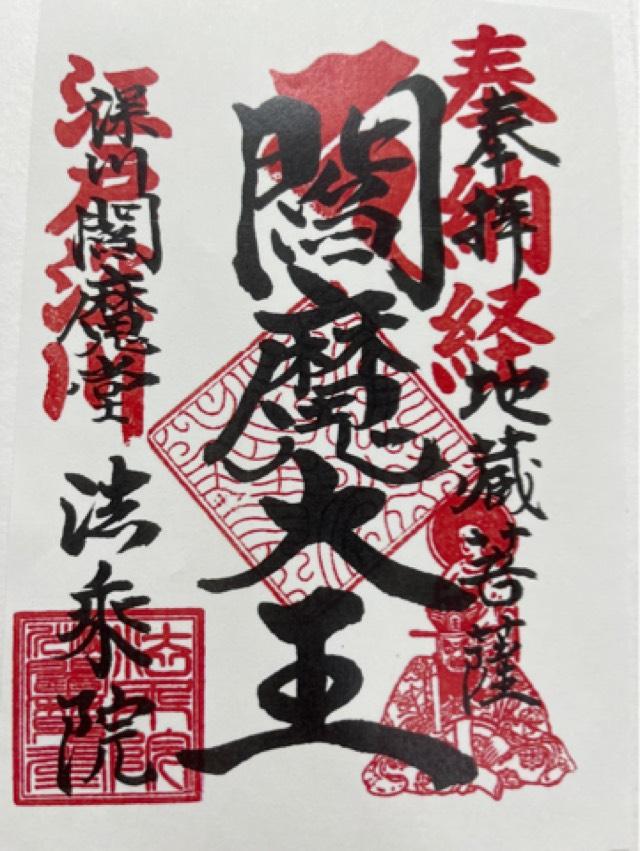 奉納経
奉拝 地蔵菩薩
閻魔大王
深川閻魔堂 法乗院
法乗院